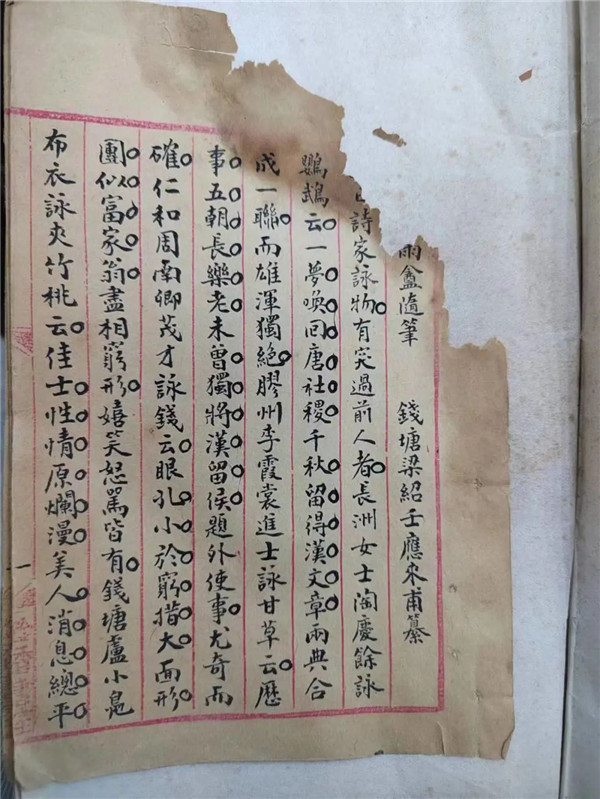 雨盦隨筆 錢塘梁紹壬應來甫纂
詩家詠物有突過前人者長洲女士陶慶餘詠
鸚鵡云一夢喚回唐社稷千秋留得漢文章兩典合
成一聯而雄渾獨絕膠州李霞裳進士詠甘草云歷
事五朝長樂老未曾獨將漢留侯題外使事尤奇而
確仁和周南卿茂才詠錢云眼孔小於窮措大面形
團似富家翁盡相窮形嬉笑怒罵皆有錢塘盧小鳧
布衣詠夾竹桃云佳士性情原爛漫美人消息總平
一